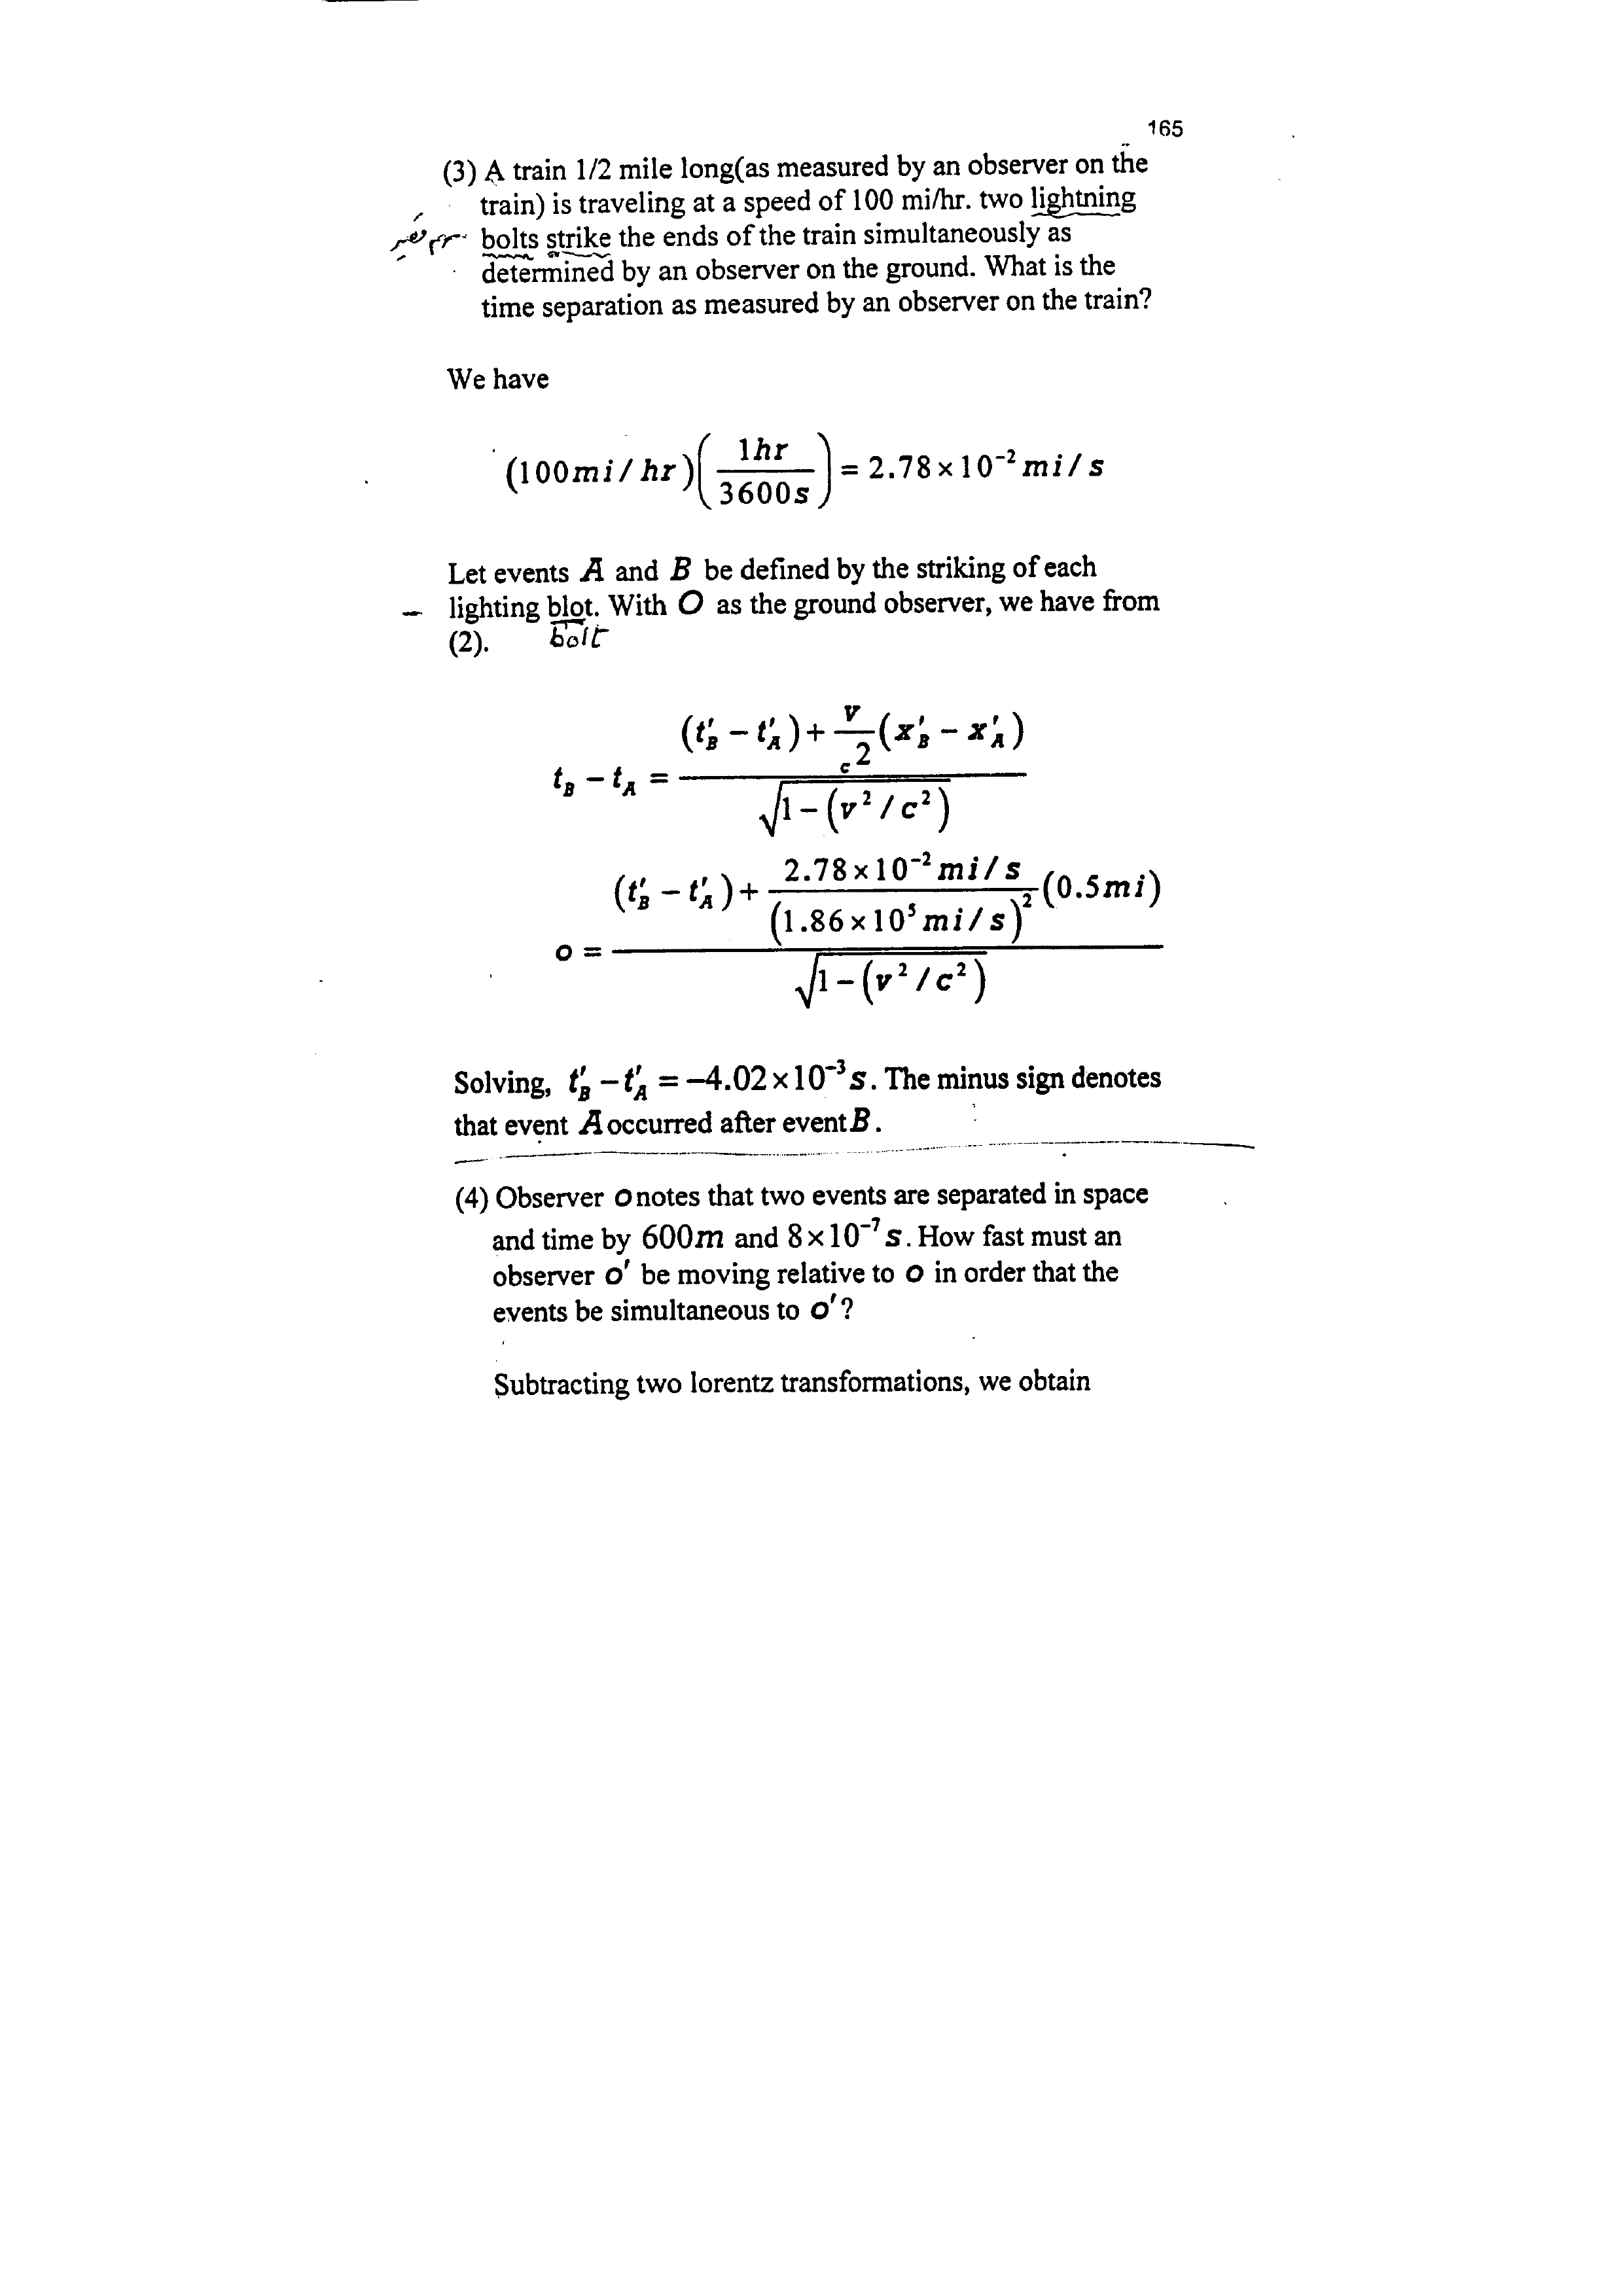 165
(3) A train 1/2 mile long(as measured by an observer on the
train) is traveling at a speed of 100 mi/hr. two lightning
bolts strike the ends of the train simultaneously as
determined by an observer on the ground. What is the
time separation as measured by an observer on the train?
We have
(100mi/hr)(1hr/3600s) = 2.78×10⁻² mi/s
Let events A and B be defined by the striking of each
lighting blot. With O as the ground observer, we have from
(2). bolt
t_B − t_A = ((t′_B − t′_A) + v/c²(x′_B − x′_A)) / √(1−(v²/c²))
o = ((t′_B − t′_A) + (2.78×10⁻² mi/s)/(1.86×10⁵ mi/s)² (0.5mi)) / √(1−(v²/c²))
Solving, t′_B − t′_A = −4.02×10⁻³ s. The minus sign denotes
that event A occurred after event B.
(4) Observer o notes that two events are separated in space
and time by 600m and 8×10⁻⁷ s. How fast must an
observer o′ be moving relative to o in order that the
events be simultaneous to o′?
Subtracting two lorentz transformations, we obtain